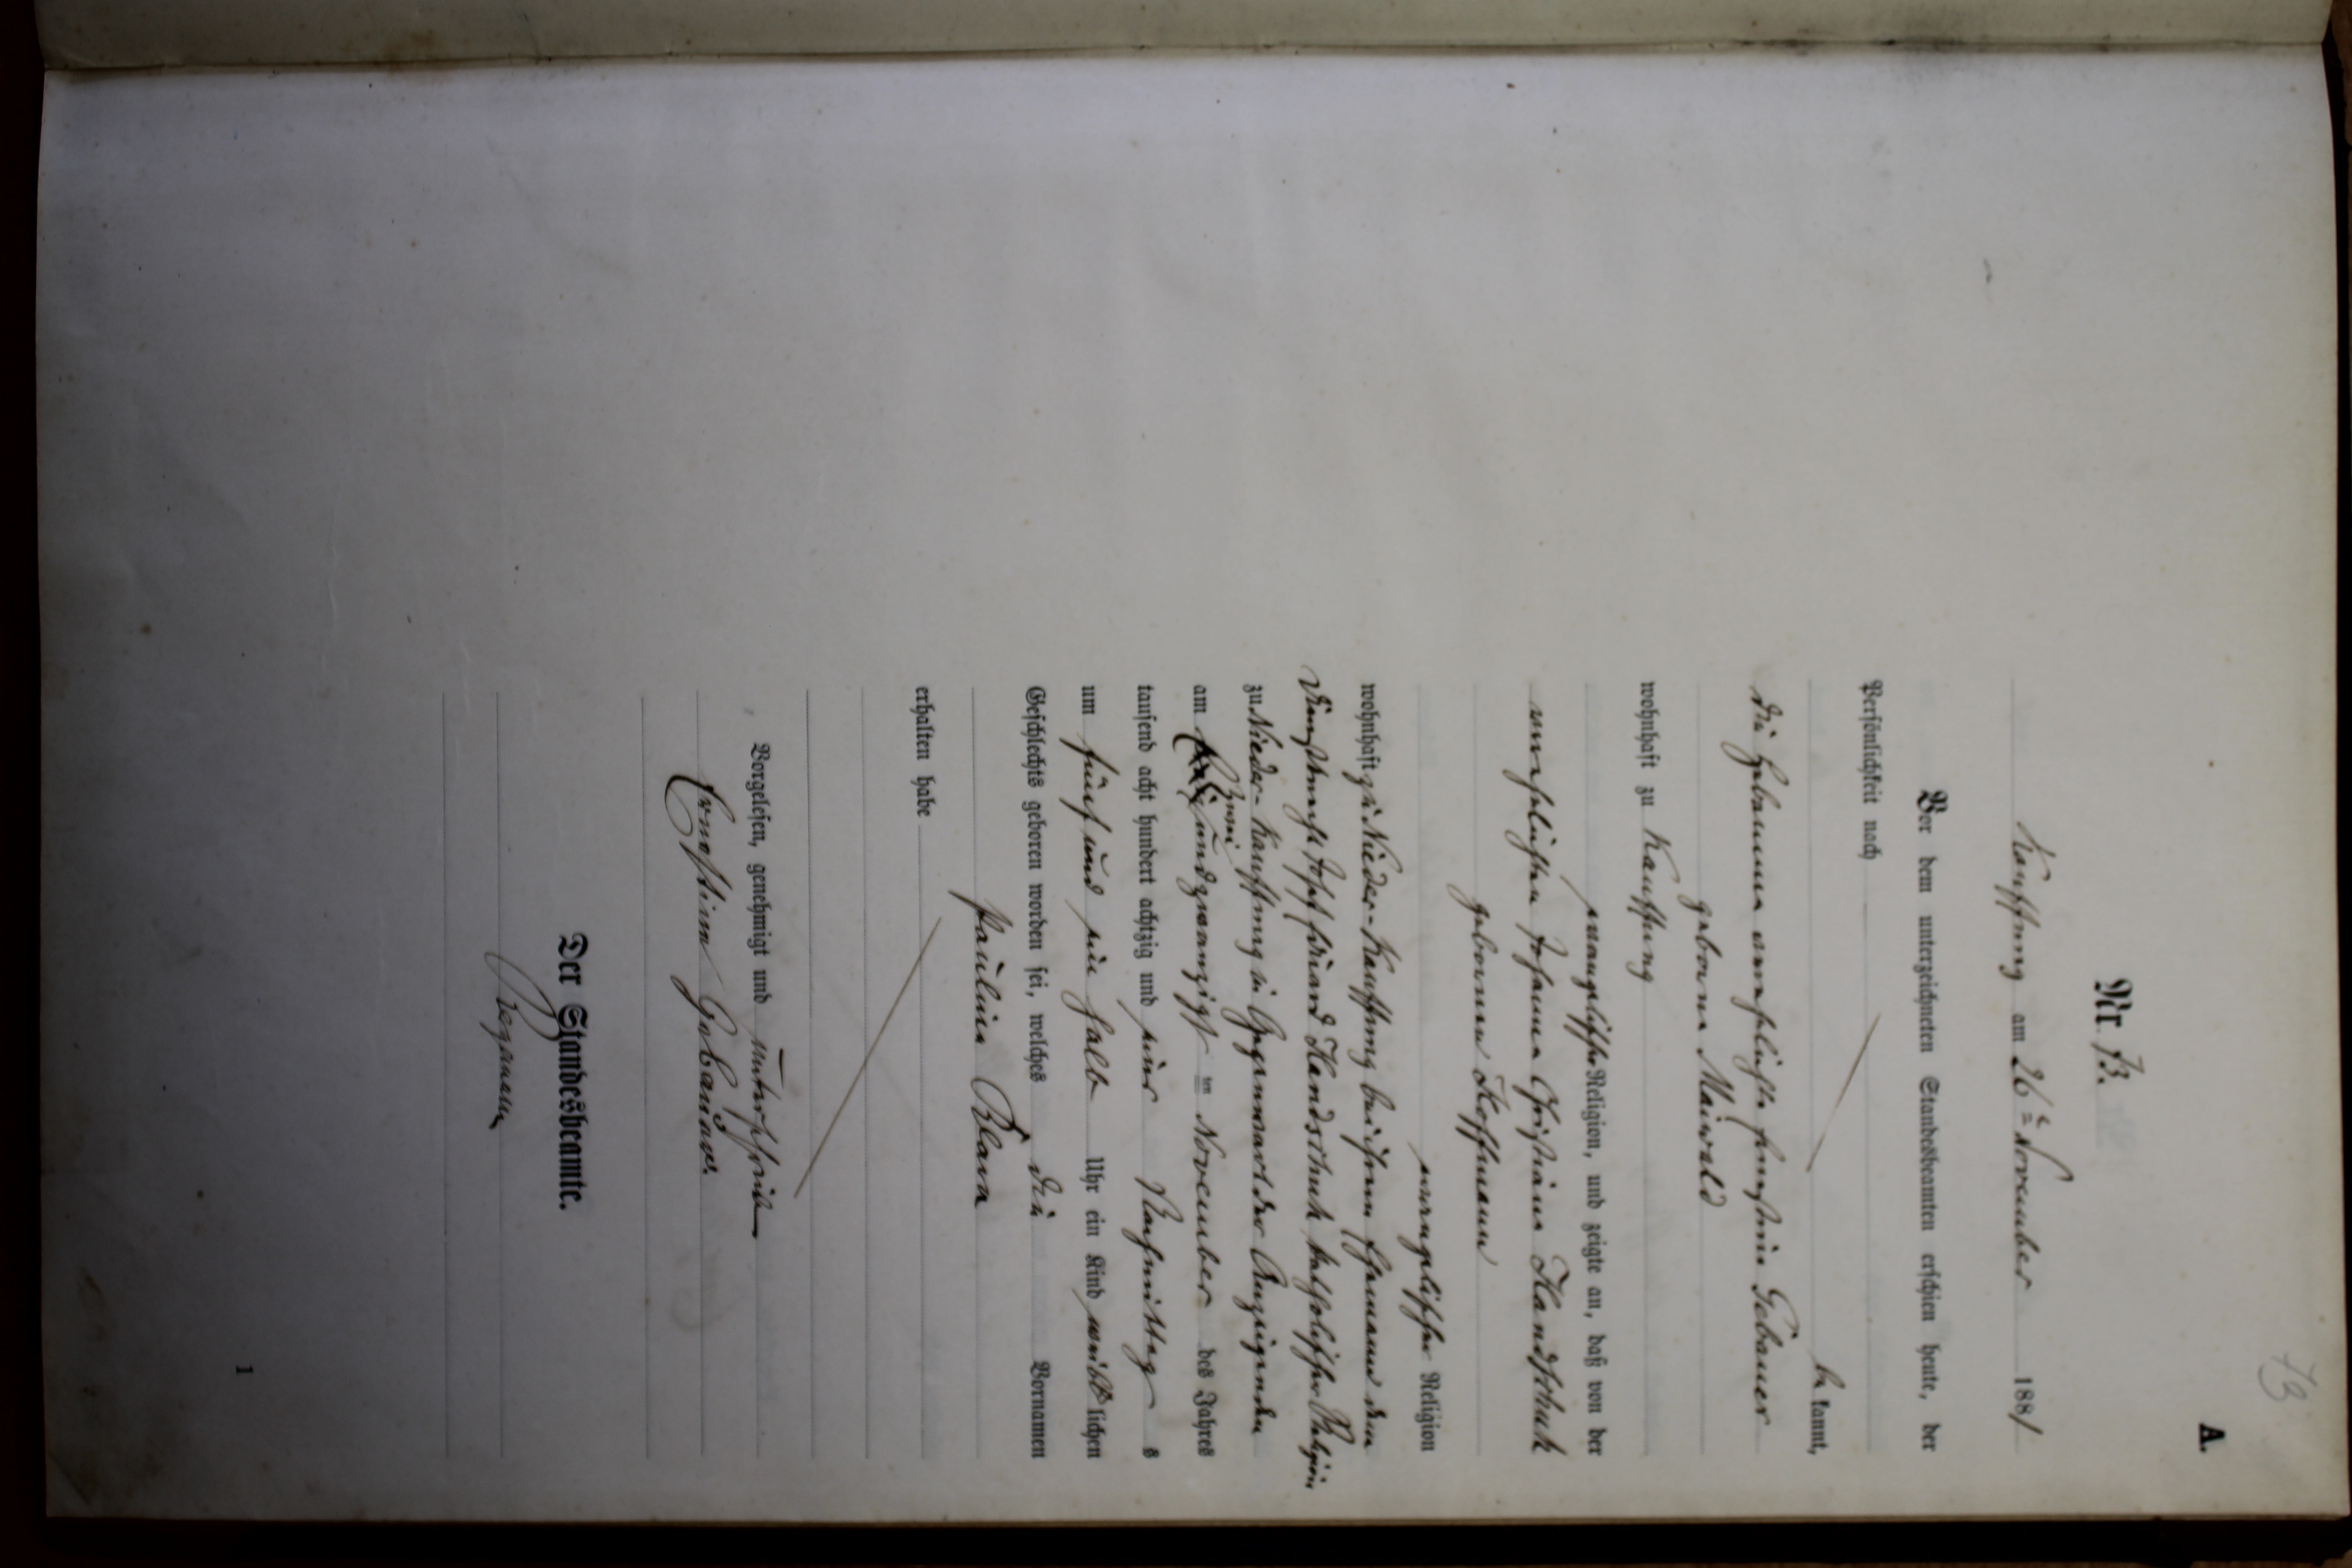 73
A.
Nr. 73.
Kauffung am 26ᵗ November 1881
Vor dem unterzeichneten Standesbeamten erschien heute, der
Persönlichkeit nach
be kannt,
die Hebamme verehelichte Ernestine Gebauer
geborne Maiwald
wohnhaft zu Kauffung
evangelischer Religion, und zeigte an, daß von der
verehelichten Johanne Christiane Handschuh
geborenen Hoffmann
evangelischer Religion
wohnhaft zu Nieder-Kauffung bei ihrem Ehemann dem
Dienstknecht Josef Handschuh katholischer Religion
zu Nieder-Kauffung in Gegenwart der Anzeigenden
zwei
am undzwanzigst ten November des Jahres
tausend acht hundert achtzig und eins Nachmittag s
um fünf und ein halb Uhr ein Kind weib lichen
Geschlechts geboren worden sei, welches die Vornamen
Pauline Klara
erhalten habe
Vorgelesen, genehmigt und unterschrieben
Ernestine Gebauer.
Der Standesbeamte.
1